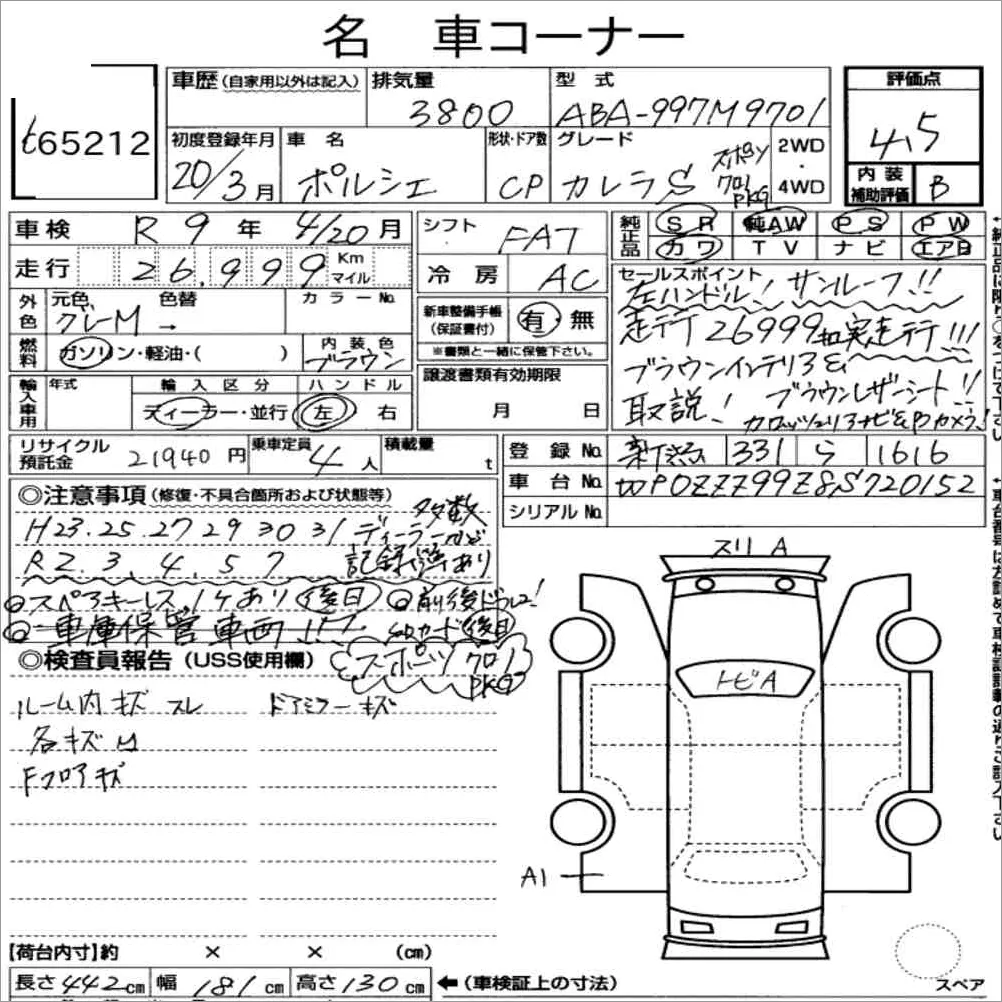 名 車コーナー
t65212
車歴(自家用以外は記入) 排気量 3800 型式 ABA-997M9701
評価点 4,5
初度登録年月 20/3月 車名 ポルシェ 形状・ドア数 CP グレード カレラS スポーツ 701 PKG 2WD・4WD
内装補助評価 B
車検 R9年 4/20月
走行 26,999 Km マイル
シフト FA7
冷房 AC
純正品 SR 純AW PS PW
カワ TV ナビ エアB
外色 元色 グレーM → 色替 カラーNo.
燃料 ガソリン・軽油・( ) 内装色 ブラウン
新車整備手帳(保証書付) 有・無
※書類と一緒に保管下さい。
セールスポイント
左ハンドル! サンルーフ!!
走行26999km実走行!!!
ブラウンインテリア&
取説! ブラウンレザーシート!!
輸入車用 年式 輸入区分 ディーラー・並行 ハンドル 左 右
譲渡書類有効期限 月 日
リサイクル預託金 21940円 乗車定員 4人 積載量 t
登録No. 新潟 331 ら 1616
車台No. WP0ZZZ99Z8S720152
シリアルNo.
◎注意事項(修復・不具合箇所および状態等)
H23.25.27 29 30 31 ディーラー 多数
R2.3.4.5 7 記録簿あり
◎スペアキーレス1ケあり 後日 ◎前後ドラレコ!
◎車庫保管車両!! SDカード後日
スポーツ 701 PKG
◎検査員報告(USS使用欄)
ルーム内キズ スレ
各キズ
Fフロアキズ
ドアミラーキズ
スリA
トビA
A1
【荷台内寸】約 × × (cm)
長さ442cm 幅181cm 高さ130cm ←(車検証上の寸法)
スペア